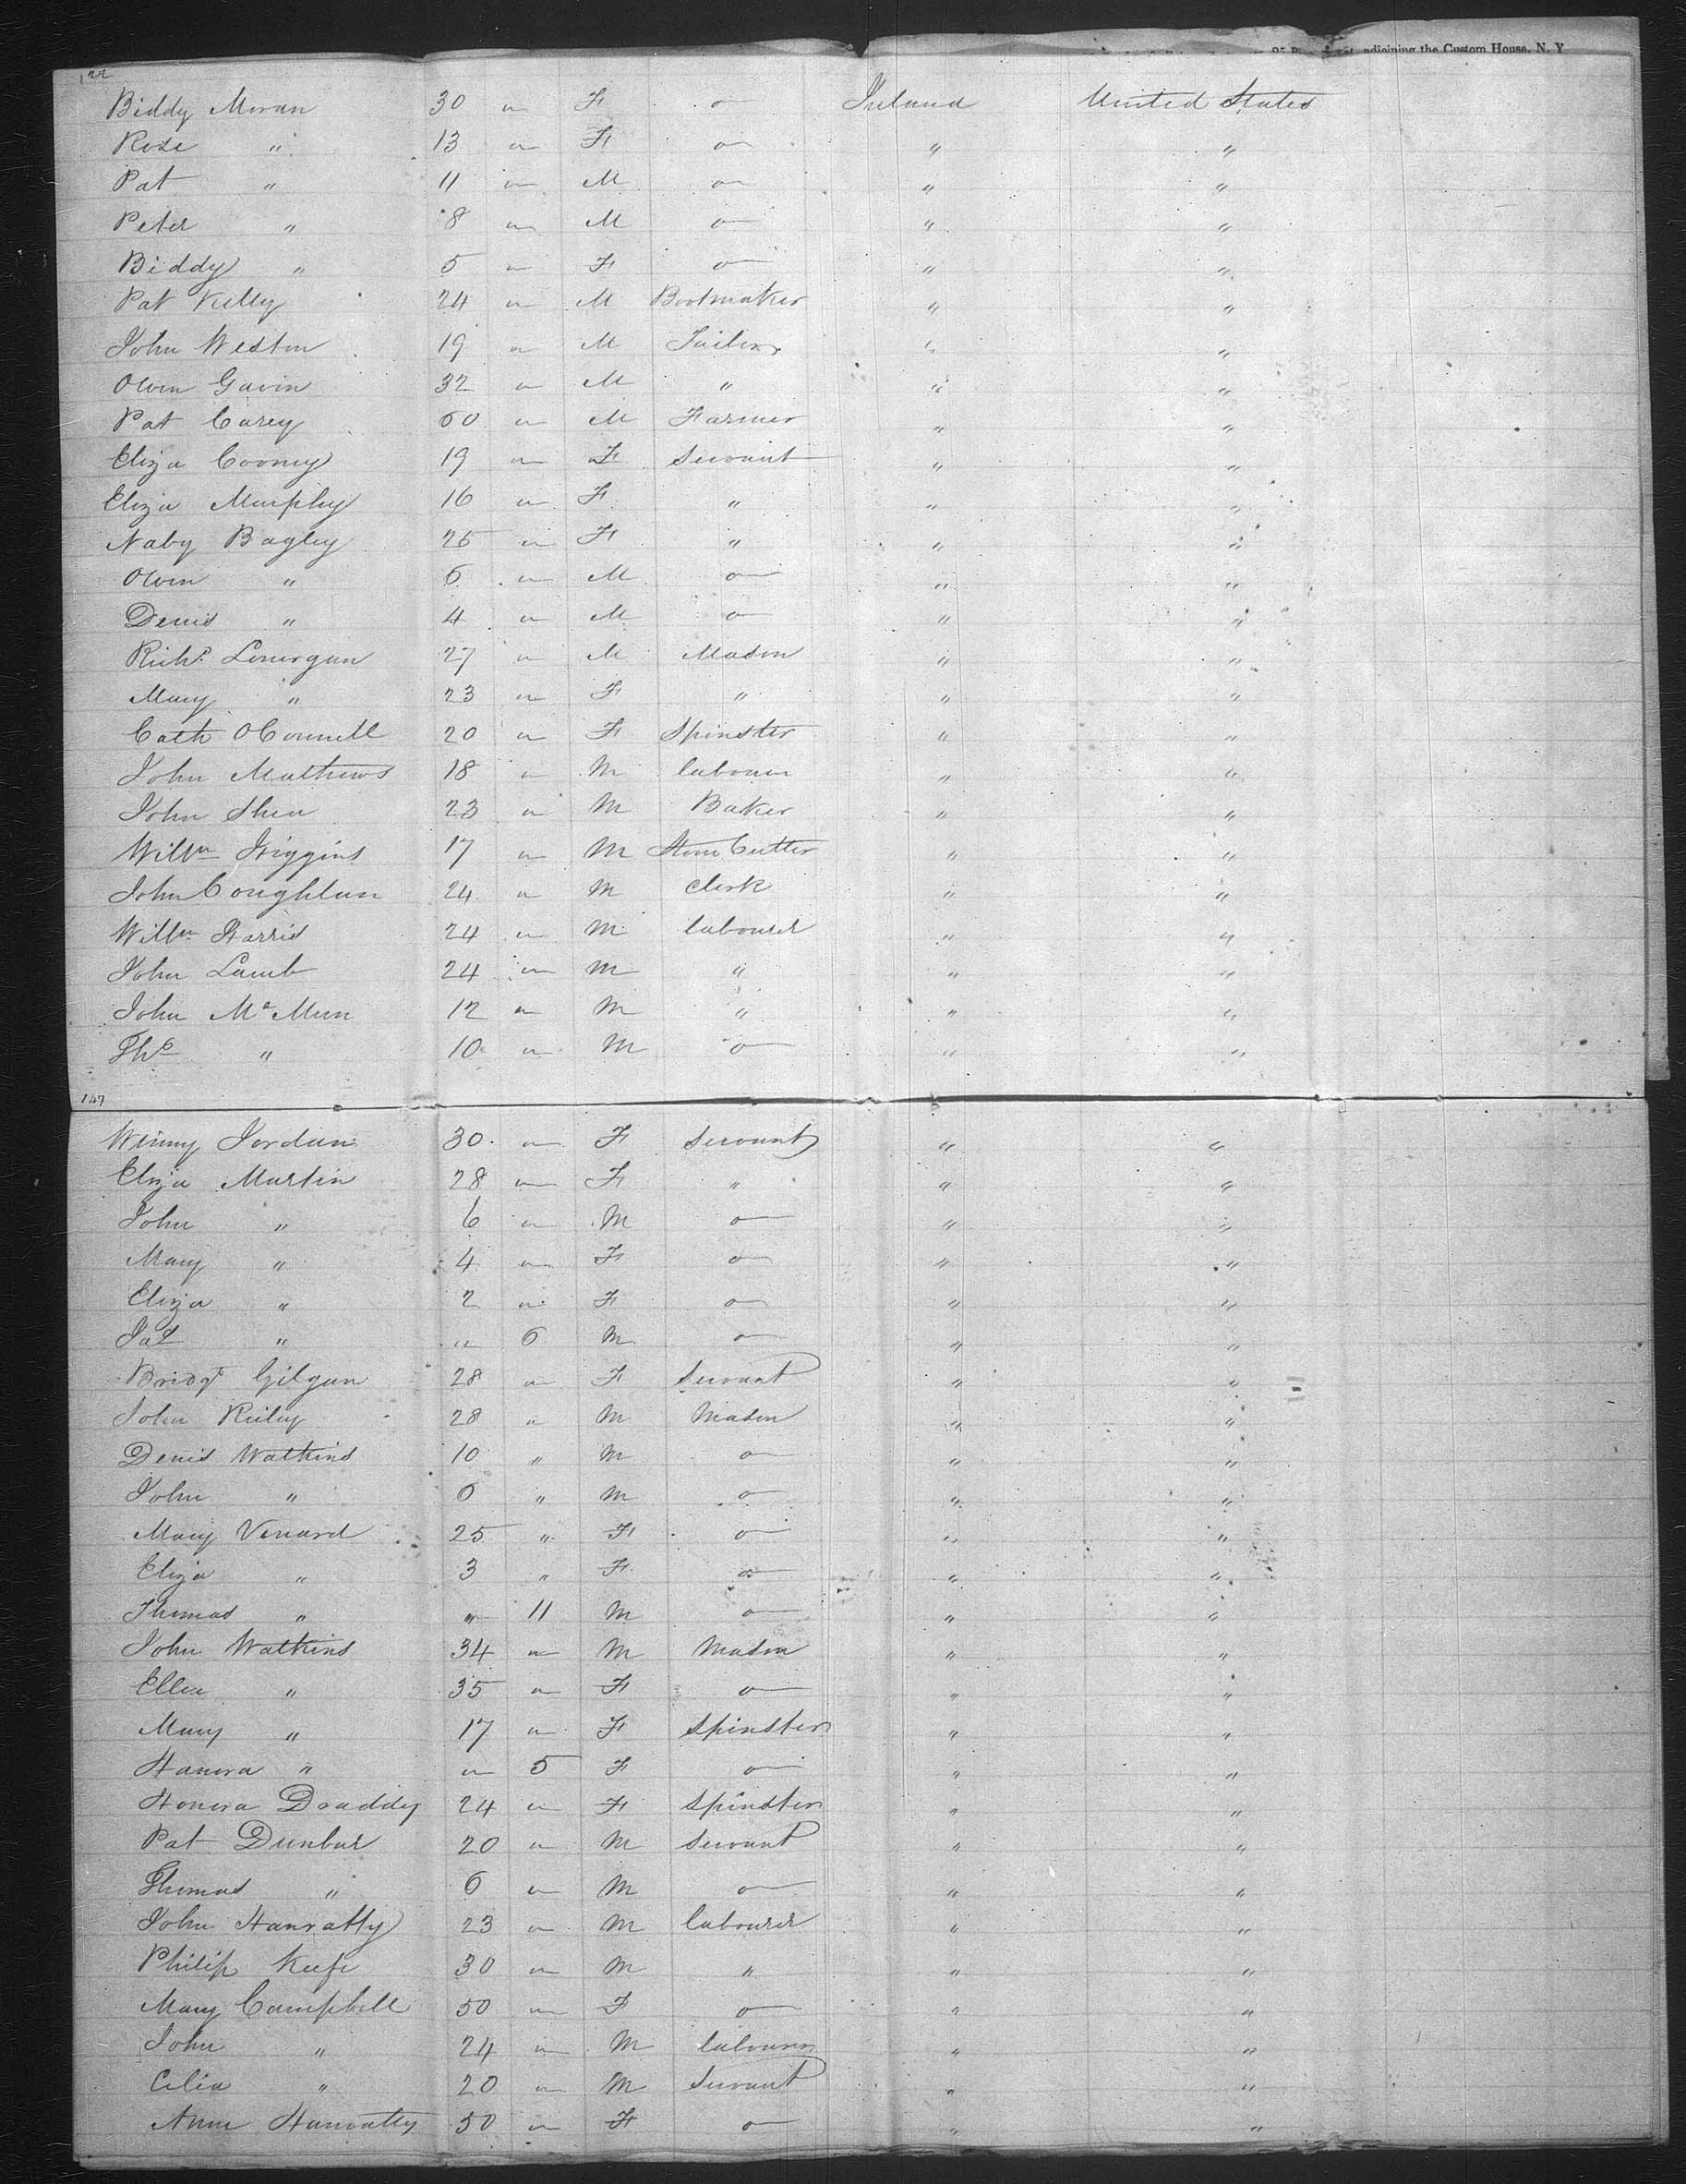 adjoining the Custom House, N. Y
122
Biddy Moran 30 " F o Ireland United States
Rose " 13 " F o " "
Pat " 11 " M o " "
Peter " 8 " M o " "
Biddy " 5 " F o " "
Pat Kelly 24 " M Bootmaker " "
John Weston 19 " M Tailor " "
Owen Gavin 32 " M " " "
Pat Carey 60 " M Farmer " "
Eliza Cooney 19 " F Servant " "
Eliza Murphy 16 " F " " "
Naby Bagley 25 " F " " "
Owen " 6 " M o " "
Denis " 4 " M o " "
Richd Lonergan 27 " M Mason " "
Mary " 23 " F " " "
Cath OConnell 20 " F Spinster " "
John Mathews 18 " M labourer " "
John Shea 23 " M Baker " "
Willm Higgins 17 " M Stone Cutter " "
John Coughlan 24 " M Clerk " "
Willm Harris 24 " M labourer " "
John Lamb 24 " M " " "
John Mc Mun 12 " M " " "
Ths " 10 " M o " "
147
Winny Jordan 30 " F Servant " "
Eliza Martin 28 " F " " "
John " 6 " M o " "
Mary " 4 " F o " "
Eliza " 2 " F o " "
" " 6 M o " "
Bridgt Gilgan 28 " F Servant " "
John Reiley 28 " M Mason " "
Denis Watkins 10 " M o " "
John " 6 " M o " "
Mary Venard 25 " F o " "
Eliza " 3 " F o " "
Thomas " " 11 M o " "
John Watkins 34 " M Mason " "
Ellen " 35 " F o " "
Mary " 17 " F Spinster " "
Hanora " " 5 F o " "
Honora Draddy 24 " F Spinster " "
Pat Dunbar 20 " M Servant " "
Thomas " 6 " M o " "
John Hanratty 23 " M labourer " "
Philip Keefe 30 " M " " "
Mary Campbell 50 " F o " "
John " 24 " M labourer " "
Celia " 20 " M Servant " "
Anne Hanratty 50 " F o " "